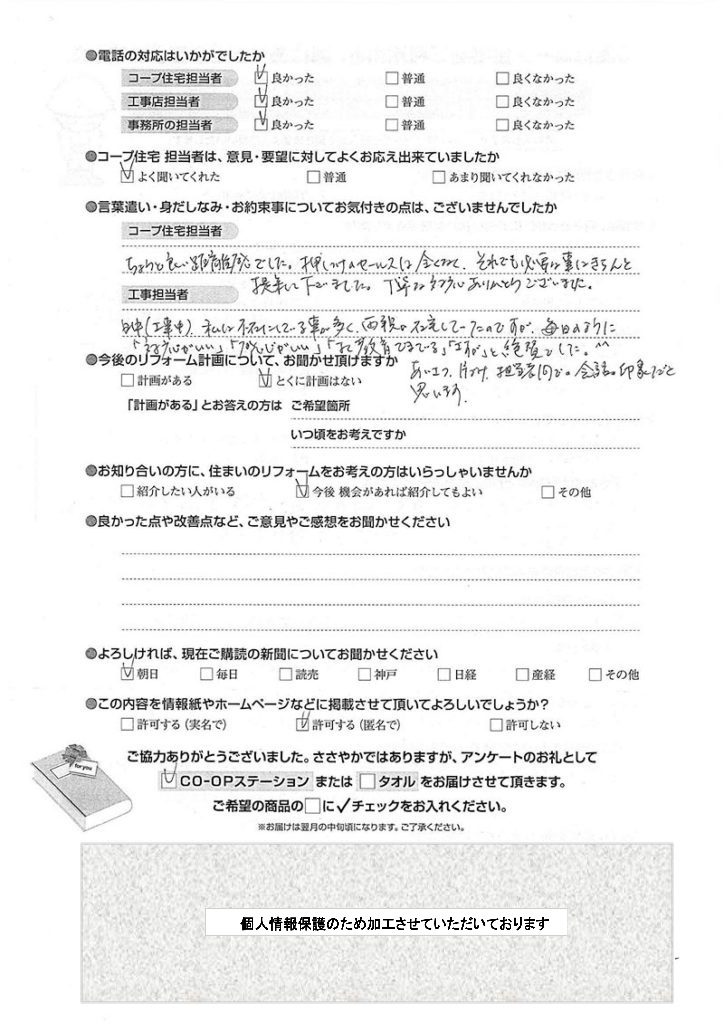 ●電話の対応はいかがでしたか
コープ住宅担当者 ☑良かった □普通 □良くなかった
工事店担当者 ☑良かった □普通 □良くなかった
事務所の担当者 ☑良かった □普通 □良くなかった
●コープ住宅 担当者は、意見・要望に対してよくお応え出来ていましたか
☑よく聞いてくれた □普通 □あまり聞いてくれなかった
●言葉遣い・身だしなみ・お約束事についてお気付きの点は、ございませんでしたか
コープ住宅担当者
ちょうど良い距離感でした。押しつけのセールスは全くなく、それでも必要な事はきちんと
提案して下さいました。丁寧な対応ありがとうございました。
工事担当者
日中(工事中)、私は不在にしている事が多く、両親が在宅していたのですが、毎日のように
「いい」「いい」「教育できている」「さすが」と絶賛でした。^^
あいさつ、片づけ、担当者同士の会話の印象だと
思います。
●今後のリフォーム計画について、お聞かせ頂けますか
□計画がある ☑とくに計画はない
「計画がある」とお答えの方は ご希望箇所
いつ頃をお考えですか
●お知り合いの方に、住まいのリフォームをお考えの方はいらっしゃいませんか
□紹介したい人がいる ☑今後 機会があれば紹介してもよい □その他
●良かった点や改善点など、ご意見やご感想をお聞かせください
●よろしければ、現在ご購読の新聞についてお聞かせください
☑朝日 □毎日 □読売 □神戸 □日経 □産経 □その他
●この内容を情報紙やホームページなどに掲載させて頂いてよろしいでしょうか?
□許可する(実名で) ☑許可する(匿名で) □許可しない
ご協力ありがとうございました。ささやかではありますが、アンケートのお礼として
☑CO-OPステーション または □タオル をお届けさせて頂きます。
for you
ご希望の商品の□に✓チェックをお入れください。
※お届けは翌月の中旬頃になります。ご了承ください。
個人情報保護のため加工させていただいております